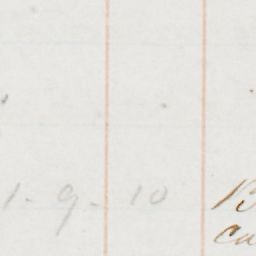 1 - 9 - 10 B
Ca